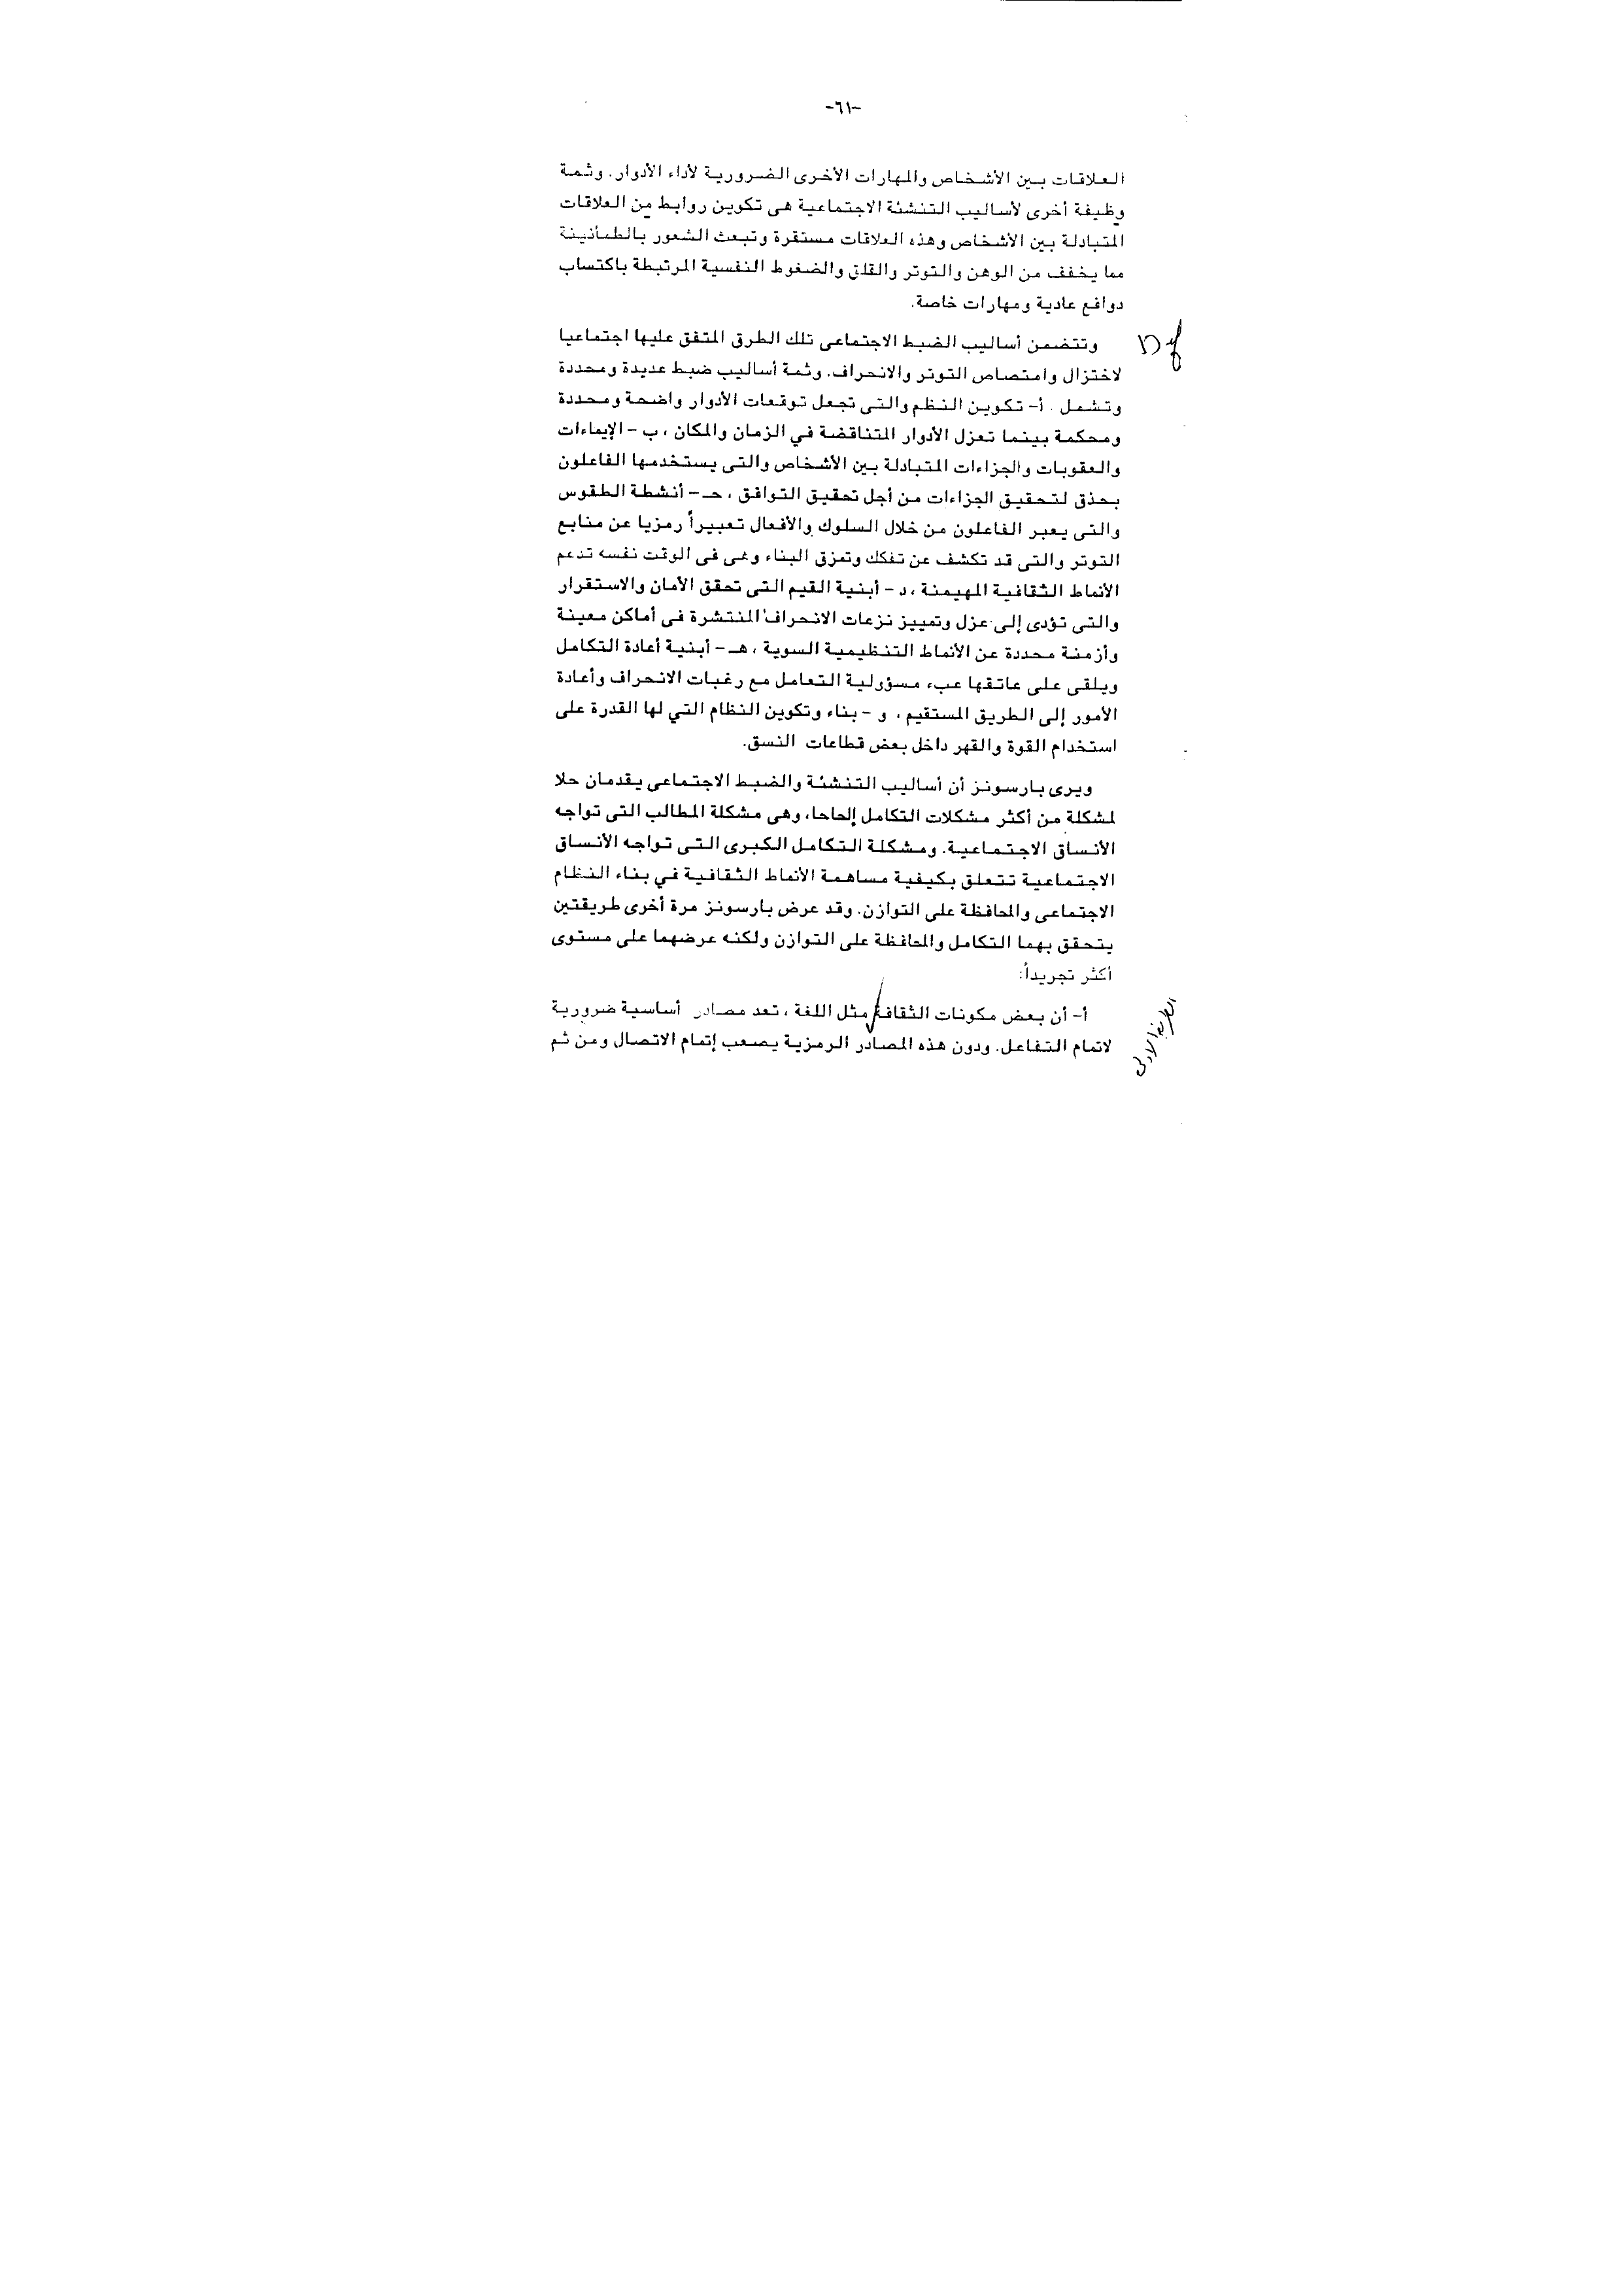 -٦١-
العلاقات بين الأشخاص والمهارات الأخرى الضرورية لأداء الأدوار. وثمة
وظيفة أخرى لأساليب التنشئة الاجتماعية هى تكوين روابط من العلاقات
المتبادلة بين الأشخاص وهذه العلاقات مستقرة وتبعث الشعور بالطمأنينة
مما يخفف من الوهن والتوتر والقلق والضغوط النفسية المرتبطة باكتساب
دوافع عادية ومهارات خاصة.
وتتضمن أساليب الضبط الاجتماعى تلك الطرق المتفق عليها اجتماعيا
لاختزال وامتصاص التوتر والانحراف. وثمة أساليب ضبط عديدة ومحددة
وتشمل . أ- تكوين النظم والتى تجعل توقعات الأدوار واضحة ومحددة
ومحكمة بينما تعزل الأدوار المتناقضة في الزمان والمكان ، ب - الإيماءات
والعقوبات والجزاءات المتبادلة بين الأشخاص والتى يستخدمها الفاعلون
بحذق لتحقيق الجزاءات من أجل تحقيق التوافق ، حـ - أنشطة الطقوس
والتى يعبر الفاعلون من خلال السلوك والأفعال تعبيراً رمزيا عن منابع
التوتر والتى قد تكشف عن تفكك وتمزق البناء وهى فى الوقت نفسه تدعم
الأنماط الثقافية المهيمنة ، د - أبنية القيم التى تحقق الأمان والاستقرار
والتى تؤدى إلى عزل وتمييز نزعات الانحراف المنتشرة فى أماكن معينة
وأزمنة محددة عن الأنماط التنظيمية السوية ، هـ - أبنية أعادة التكامل
ويلقى على عاتقها عبء مسؤولية التعامل مع رغبات الانحراف وأعادة
الأمور إلى الطريق المستقيم ، و - بناء وتكوين النظام التي لها القدرة على
استخدام القوة والقهر داخل بعض قطاعات النسق.
ويرى بارسونز أن أساليب التنشئة والضبط الاجتماعى يقدمان حلا
لمشكلة من أكثر مشكلات التكامل إلحاحا، وهى مشكلة المطالب التى تواجه
الأنساق الاجتماعية. ومشكلة التكامل الكبرى التى تواجه الأنساق
الاجتماعية تتعلق بكيفية مساهمة الأنماط الثقافية في بناء النظام
الاجتماعى والمحافظة على التوازن. وقد عرض بارسونز مرة أخرى طريقتين
يتحقق بهما التكامل والمحافظة على التوازن ولكنه عرضهما على مستوى
أكثر تجريداً:
أ- أن بعض مكونات الثقافة مثل اللغة ، تعد مصادر أساسية ضرورية
لاتمام التفاعل. ودون هذه المصادر الرمزية يصعب إتمام الاتصال ومن ثم
الطريقة الاولى